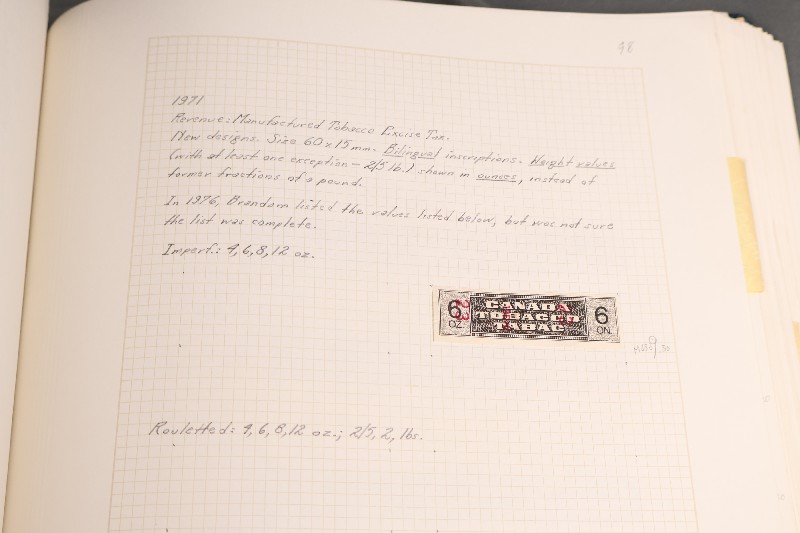 48
1971
Revenue: Manufactured Tobacco Excise Tax.
New designs. Size 60 x 15 mm. Bilingual inscriptions. Weight values
(with at least one exception - 2/5 lb.) shown in ounces, instead of
former fractions of a pound.
In 1976, Brandom listed the values listed below, but was not sure
the list was complete.
Imperf.: 4, 6, 8, 12 oz.
6 OZ.
CANADA
TOBACCO
TABAC
6 ON.
Rouletted: 4, 6, 8, 12 oz.; 2/5, 2, lbs.